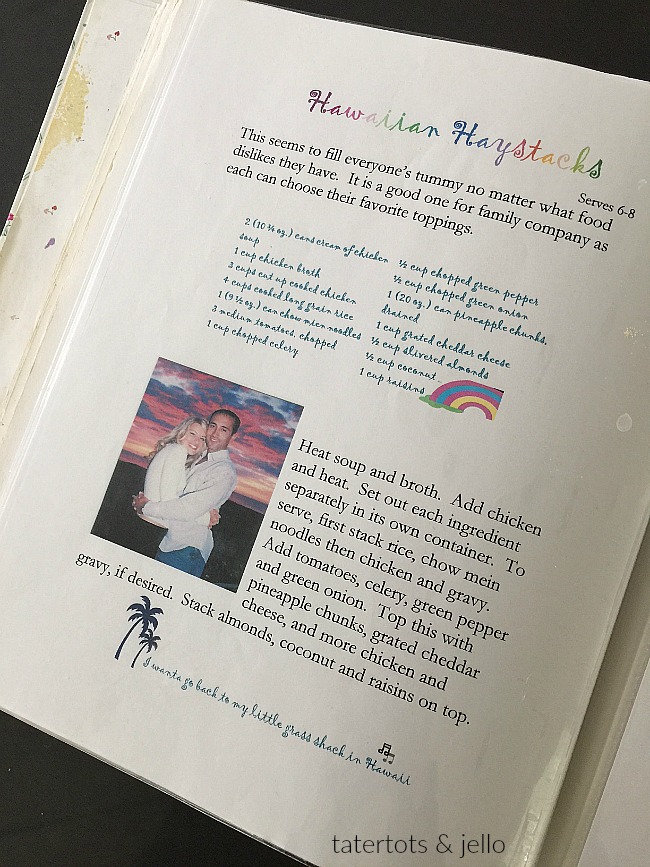 Hawaiian Haystacks
Serves 6-8
This seems to fill everyone's tummy no matter what food
dislikes they have. It is a good one for family company as
each can choose their favorite toppings.
2 (10 ¾ oz.) cans cream of chicken
soup
1 cup chicken broth
3 cups cut up cooked chicken
4 cups cooked long grain rice
1 (9 ½ oz.) can chow mien noodles
3 medium tomatoes, chopped
1 cup chopped celery
½ cup chopped green pepper
½ cup chopped green onion
1 (20 oz.) can pineapple chunks,
drained
1 cup grated cheddar cheese
½ cup slivered almonds
½ cup coconut
1 cup raisins
Heat soup and broth. Add chicken
and heat. Set out each ingredient
separately in its own container. To
serve, first stack rice, chow mein
noodles then chicken and gravy.
Add tomatoes, celery, green pepper
and green onion. Top this with
pineapple chunks, grated cheddar
cheese, and more chicken and
gravy, if desired. Stack almonds, coconut and raisins on top.
I wanta go back to my little grass shack in Hawaii
tatertots & jello